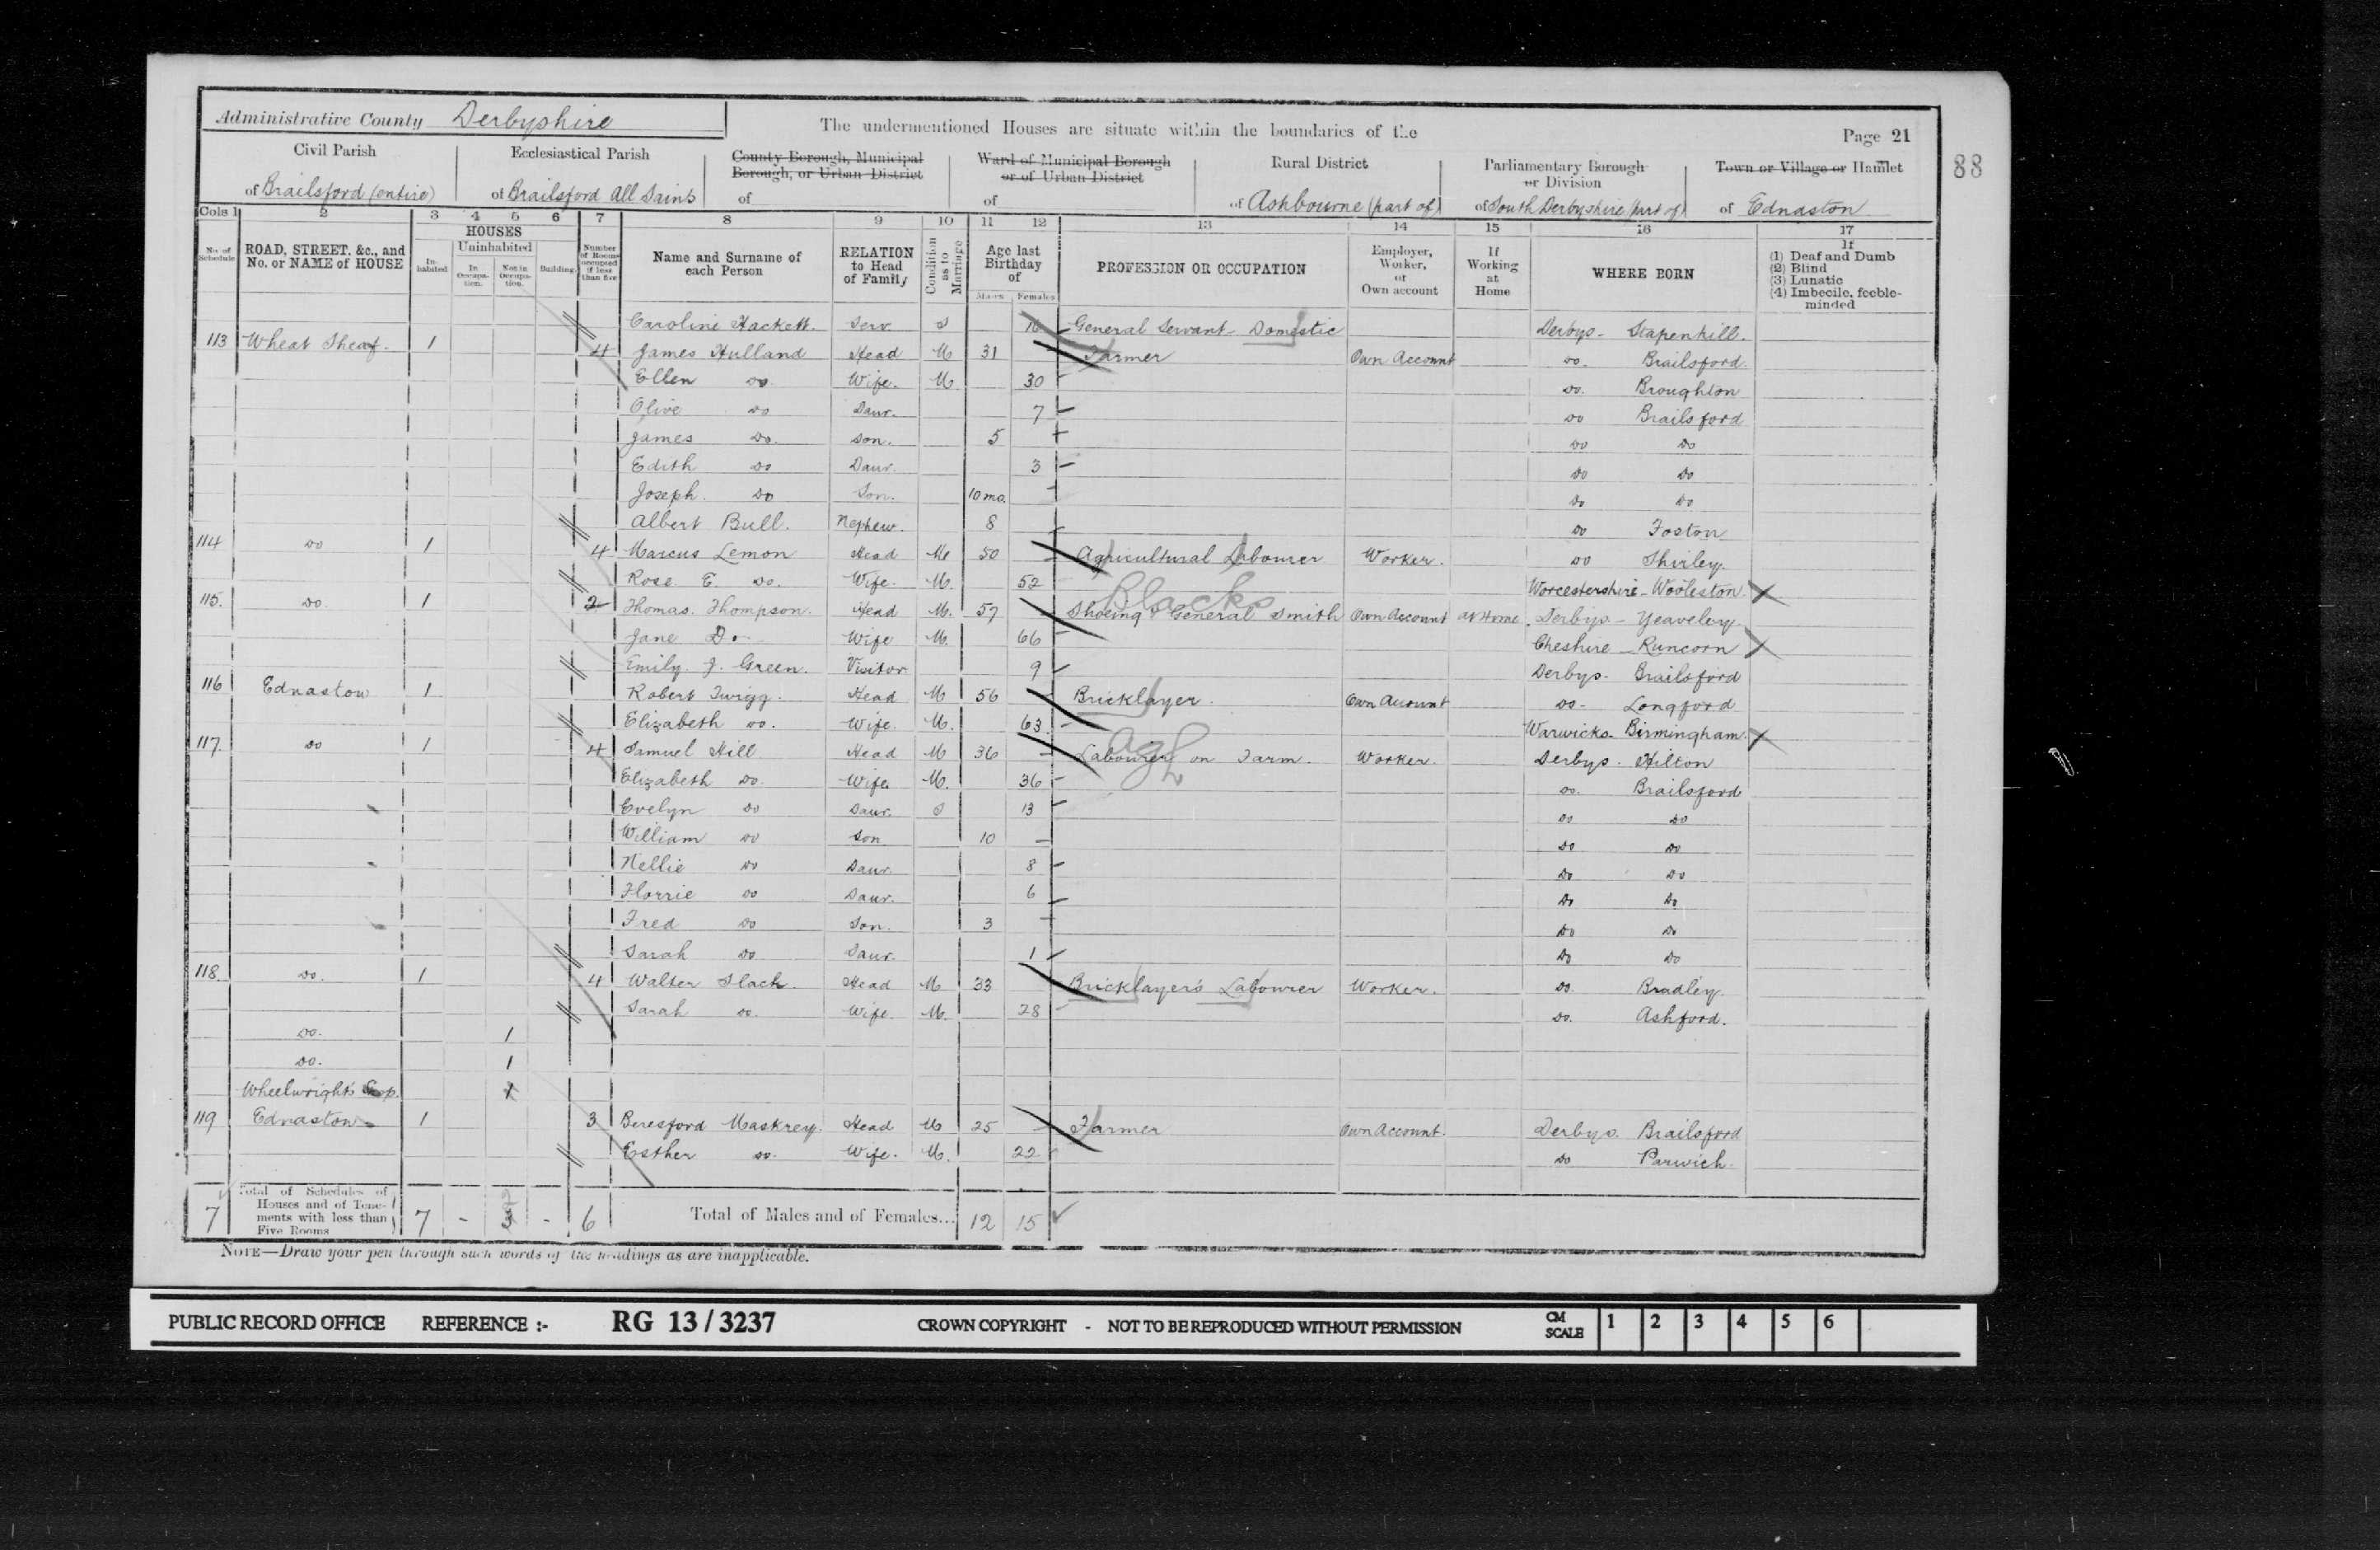 Administrative County Derbyshire
The undermentioned Houses are situate within the boundaries of the
Page 21
88
Civil Parish of Brailsford (entire)
Ecclesiastical Parish of Brailsford All Saints
County Borough, Municipal Borough, or Urban District of
Ward of Municipal Borough or of Urban District of
Rural District of Ashbourne (part of)
Parliamentary Borough or Division of South Derbyshire (part of)
Town or Village or Hamlet of Ednaston
Cols 1 2 3 4 5 6 7 8 9 10 11 12 13 14 15 16 17
No. of Schedule
ROAD, STREET, &c., and No. or NAME of HOUSE
HOUSES
Inhabited
Uninhabited
In Occupation.
Not in Occupation.
Building.
Number of Rooms occupied if less than five
Name and Surname of each Person
RELATION to Head of Family
Condition as to Marriage
Age last Birthday of
Males Females
PROFESSION OR OCCUPATION
Employer, Worker, or Own account
If Working at Home
WHERE BORN
If
(1) Deaf and Dumb
(2) Blind
(3) Lunatic
(4) Imbecile, feeble-minded
Caroline Hackett. Serv. S General Servant - Domestic Derbys - Stapenhill.
113 Wheat Sheaf. 1 4 James Hulland Head M 31 Farmer Own Account Do. Brailsford.
Ellen Do. Wife. M. 30 Do. Broughton
Olive Do Daur. 7 Do Brailsford
James Do. Son. 5 Do Do
Edith Do Daur. 3 Do Do
Joseph. Do Son. 10 mo. Do Do
Albert Bull. Nephew. 8 Do Foston
114 Do 1 4 Marcus Lemon Head M 50 Agricultural Labourer Worker. Do Shirley.
Rose E. Do. Wife. M. 52 Worcestershire - Wooleston. X
Blacks
115. Do. 1 2 Thomas. Thompson. Head M. 57 Shoeing & General Smith Own Account at Home. Derbys - Yeaveley
Jane Do Wife M. 66 Cheshire - Runcorn X
Emily. J. Green. Visitor 9 Derbys. Brailsford
116 Ednaston 1 Robert Twigg. Head M 56 Bricklayer. Own Account Do - Longford
Elizabeth Do. Wife. M. 63 Warwicks. Birmingham. X
Ag L
117 Do 1 4 Samuel Hill Head M 36 Labourer on Farm. Worker. Derbys. Hilton
Elizabeth Do. Wife. M. 36 Do. Brailsford
Evelyn Do Daur. S 13 Do Do
William Do Son 10 Do Do
Nellie Do Daur. 8 Do Do
Florrie Do Daur. 6 Do Do
Fred Do Son. 3 Do Do
Sarah Do. Daur. 1 Do Do
118. Do. 1 4 Walter Slack. Head M 33 Bricklayer's Labourer Worker. Do. Bradley.
Sarah Do. Wife. M. 28 Do. Ashford.
Do. 1
Do. 1
Wheelwright's Shop. 1
119 Ednaston 1 3 Beresford Maskrey. Head M 25 Farmer Own Account. Derbys. Brailsford
Esther Do. Wife. M. 22 Do Parwich.
7 Total of Schedules of Houses and of Tenements with less than Five Rooms 7 - - 6 Total of Males and of Females... 12 15
NOTE—Draw your pen through such words of the headings as are inapplicable.
PUBLIC RECORD OFFICE REFERENCE :- RG 13 / 3237 CROWN COPYRIGHT - NOT TO BE REPRODUCED WITHOUT PERMISSION CM SCALE 1 2 3 4 5 6